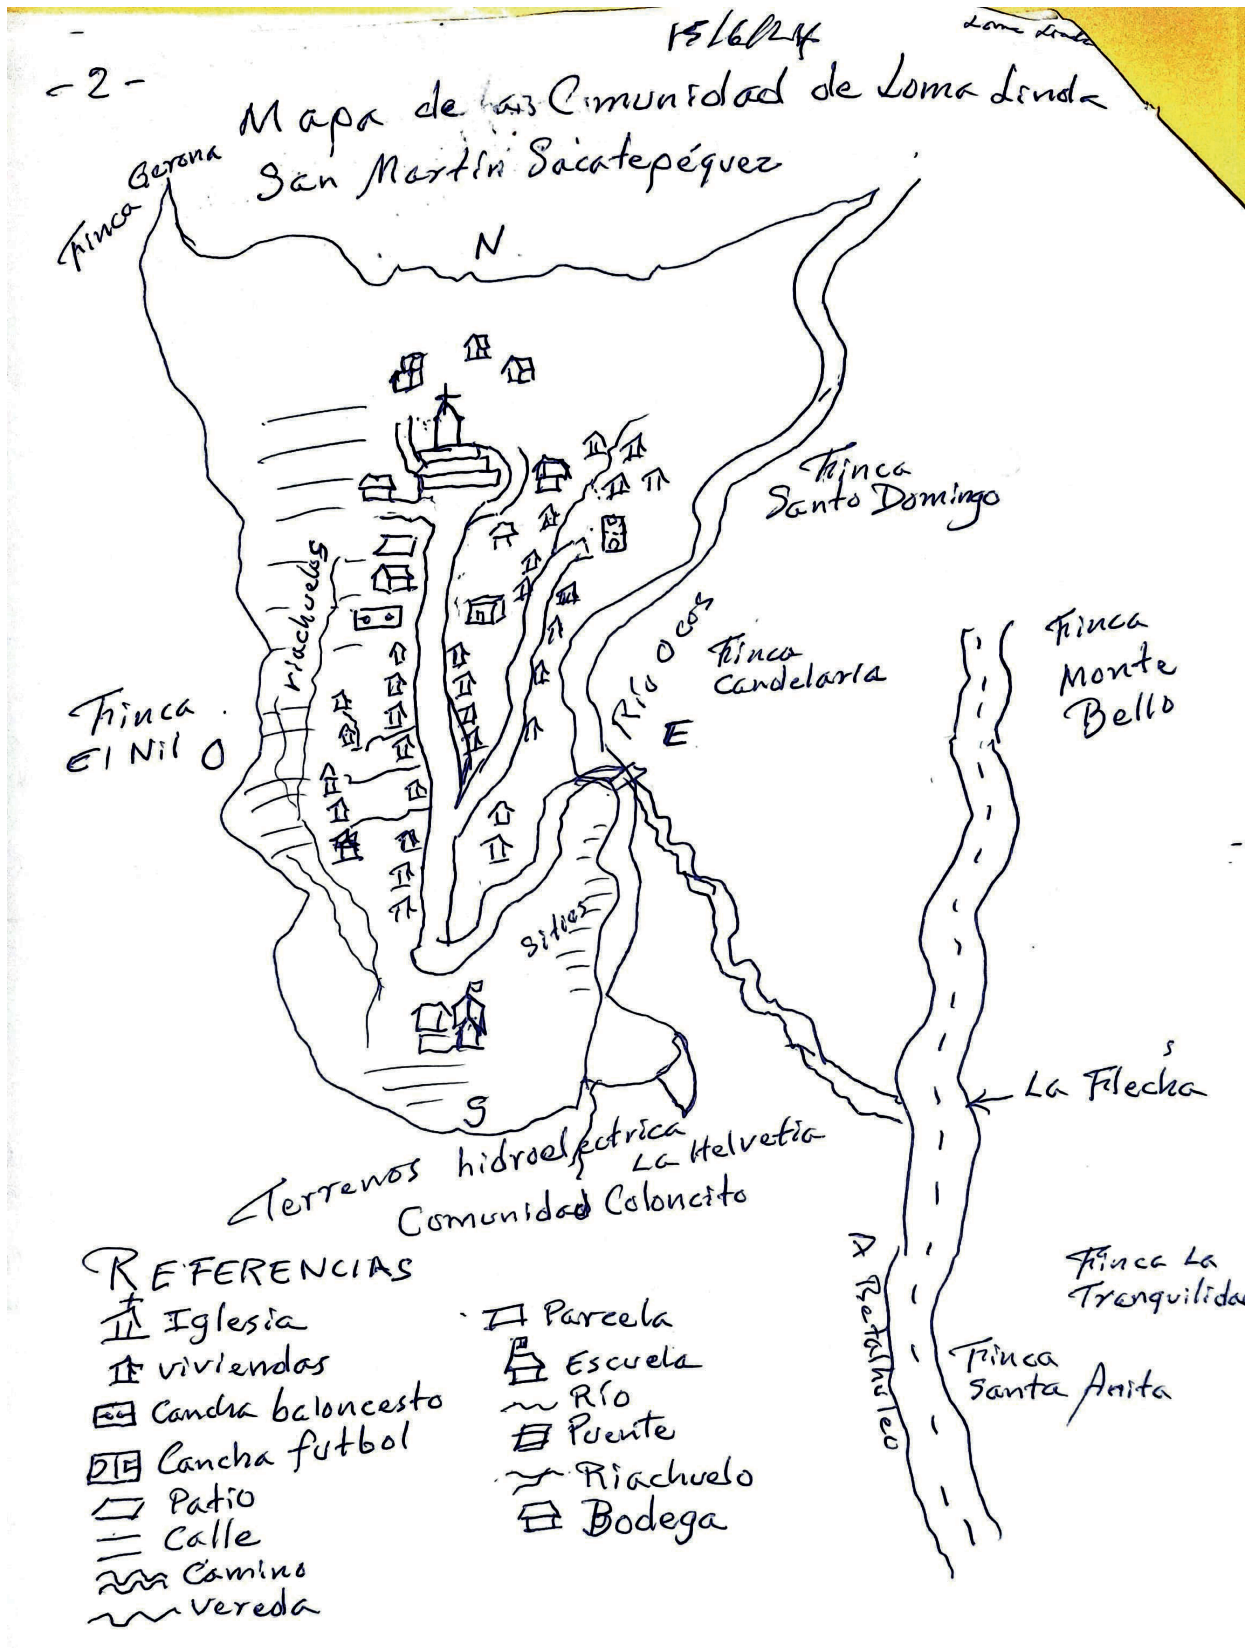 15/6/24
Loma Linda
- 2 -
Mapa de las Comunidad de Loma Linda
San Martín Sacatepéquez
Finca Gerona
N
Finca
Santo Domingo
riachuelos
Río Ocos
Finca
Candelaria
E
Finca
Monte
Bello
Finca
El Nil O
Sitios
La Flecha
s
S
Terrenos hidroelectrica
La Helvetia
Comunidad Coloncito
A Retalhuleo
Finca La
Tranquilidad
Finca
Santa Anita
REFERENCIAS
Iglesia
viviendas
Cancha baloncesto
Cancha futbol
Patio
Calle
Camino
vereda
Parcela
Escuela
Río
Puente
Riachuelo
Bodega